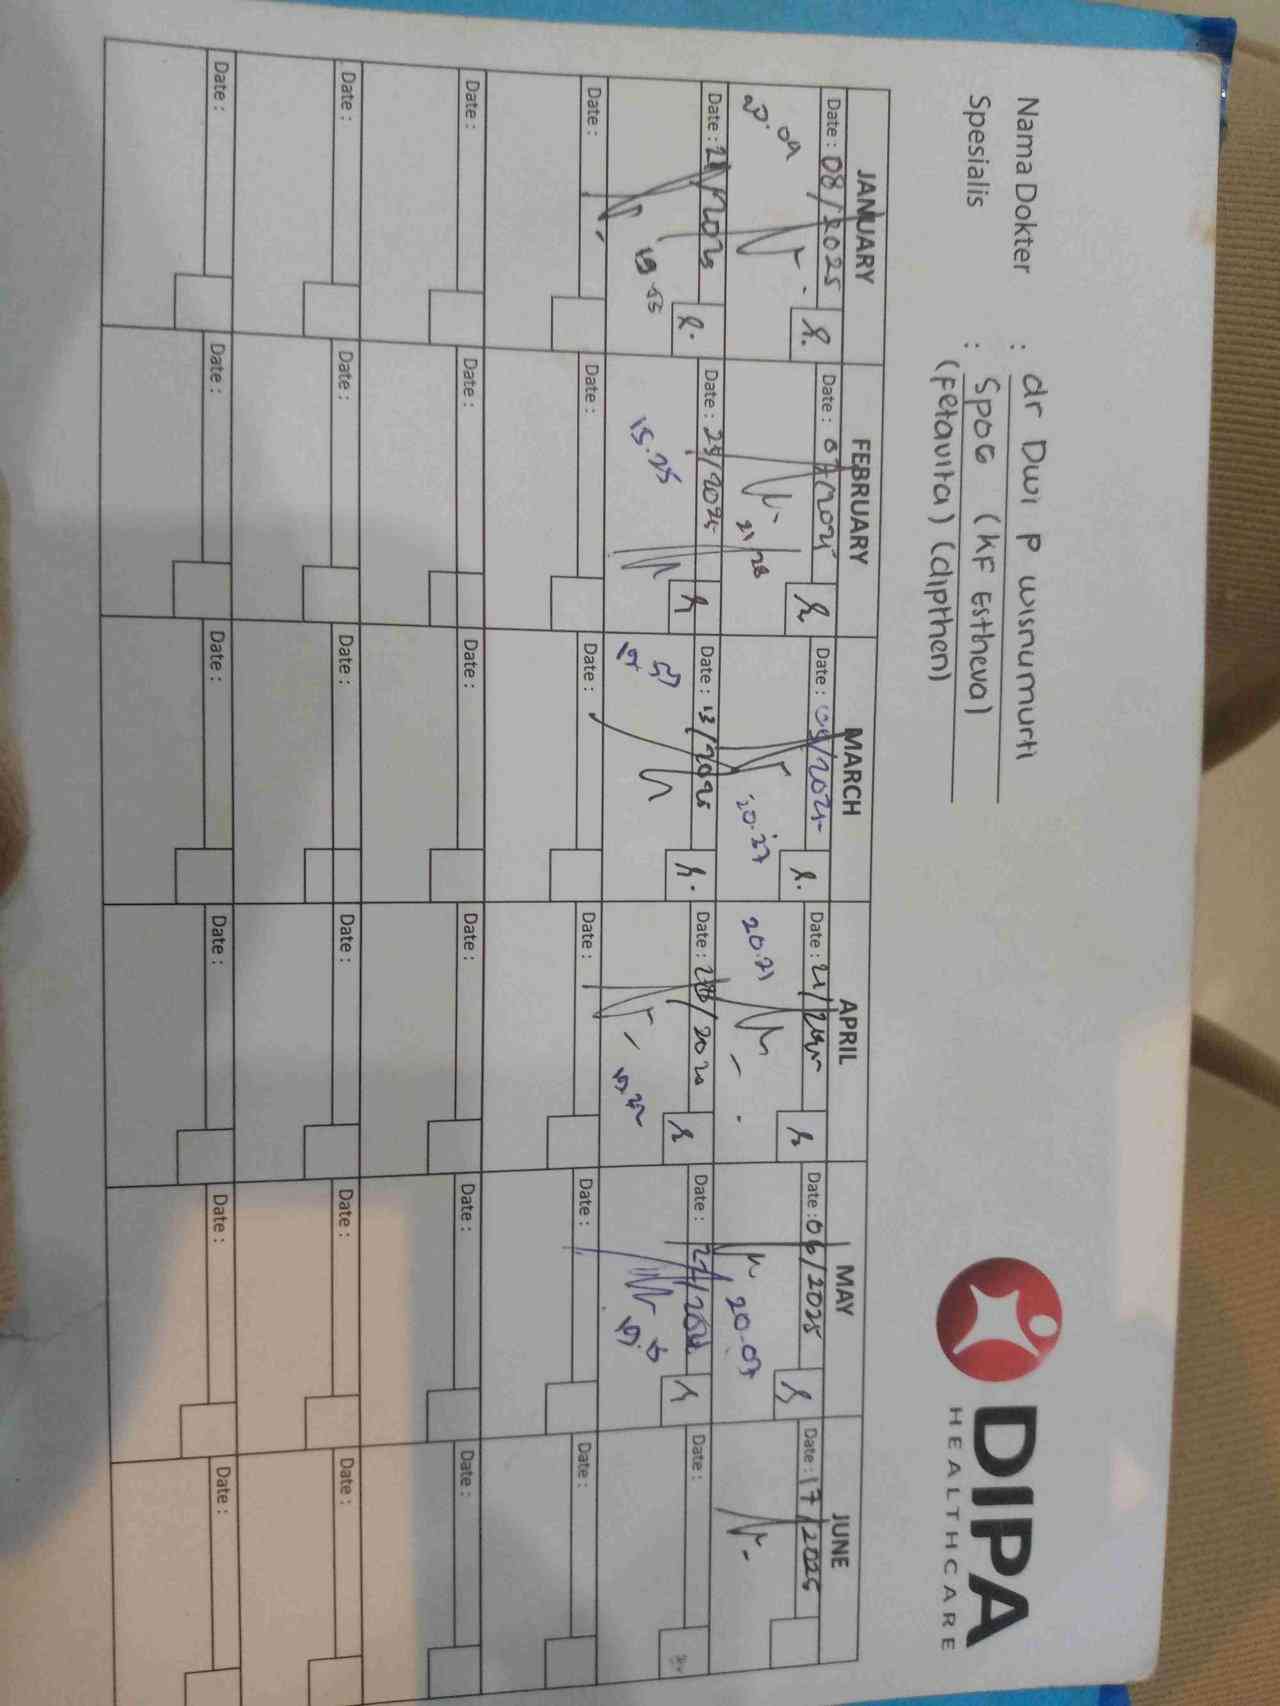 DIPA
HEALTHCARE
Nama Dokter : dr Dwi P Wisnumurti
Spesialis : SpOG (KF Estheva)
(Fetavita) (dipthen)
JANUARY FEBRUARY MARCH APRIL MAY JUNE
Date : 08/2025 Date : 07/2025 Date : 05/2025 Date : 21/ Date : 06/2025 Date : 17/2025
20.09 20.27 20.21 20.07
Date : Date : /2025 Date : 13/2025 Date : Date : Date :
15.25
Date : Date : Date : Date : Date : Date :
Date : Date : Date : Date : Date : Date :
Date : Date : Date : Date : Date : Date :
Date : Date : Date : Date : Date : Date :